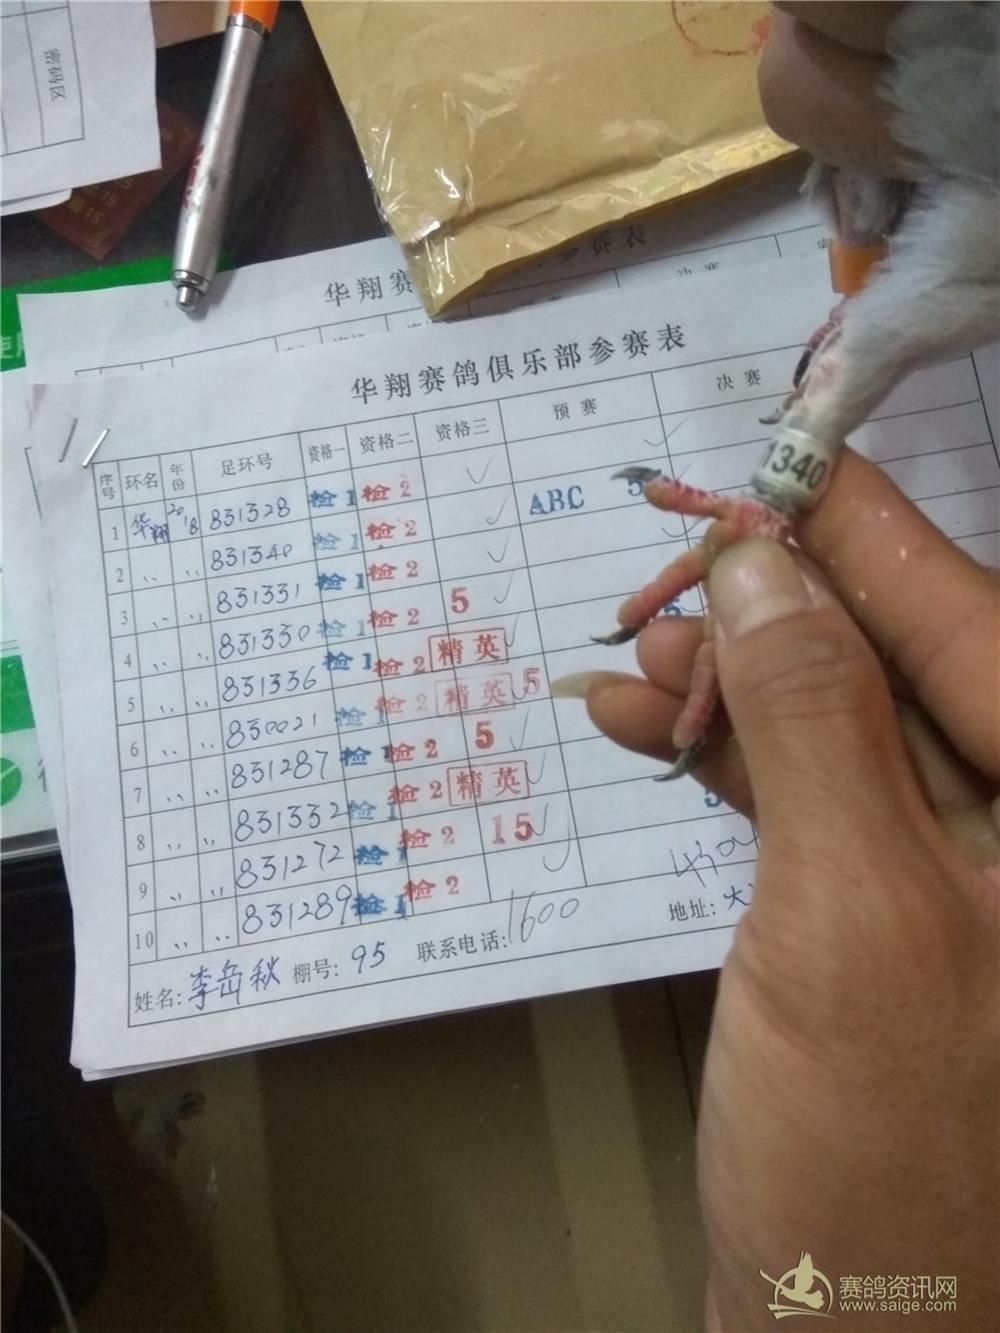 密码区
15
15
华翔赛 参赛表
决赛
华翔赛鸽俱乐部参赛表
序号 环名 年份 足环号 资格一 资格二 资格三 预赛 决赛
1 华翔 2018 831328 检1 检2 ✓
2 〃 〃 831340 检1 检2 ✓ ABC 5
3 〃 〃 831331 检1 检2 ✓
4 〃 〃 831330 检1 检2 5 ✓ 5
5 〃 〃 831336 检1 检2 精英 ✓
6 〃 〃 830021 检1 检2 精英 5 ✓
7 〃 〃 831287 检1 检2 5 ✓
8 〃 〃 831332 检1 检2 精英 ✓
9 〃 〃 831272 检1 检2 15 ✓ 5
10 〃 〃 831289 检1 检2 ✓
姓名: 李岳秋 棚号: 95 联系电话: 1600 地址: 大
1340
赛鸽资讯网
www.saige.com